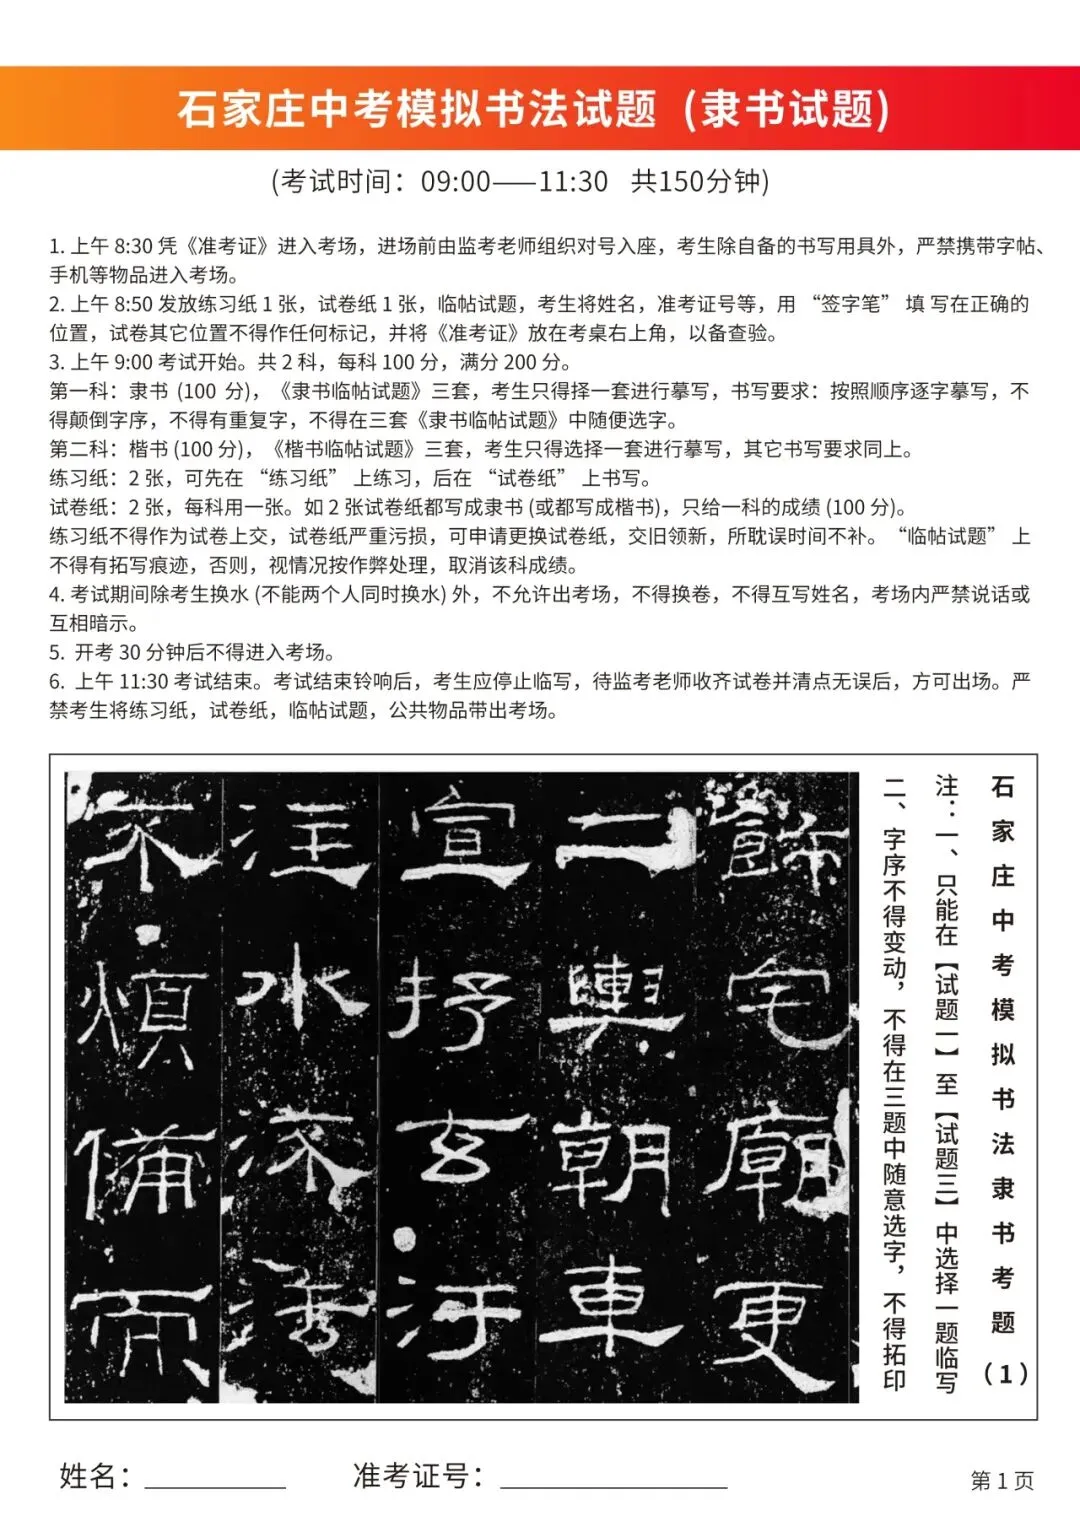 石家庄中考模拟书法试题 (隶书试题)
(考试时间：09:00——11:30 共150分钟)
1. 上午 8:30 凭《准考证》进入考场，进场前由监考老师组织对号入座，考生除自备的书写用具外，严禁携带字帖、
手机等物品进入考场。
2. 上午 8:50 发放练习纸 1 张，试卷纸 1 张，临帖试题，考生将姓名，准考证号等，用 “签字笔” 填 写在正确的
位置，试卷其它位置不得作任何标记，并将《准考证》放在考桌右上角，以备查验。
3. 上午 9:00 考试开始。共 2 科，每科 100 分，满分 200 分。
第一科：隶书 (100 分)，《隶书临帖试题》三套，考生只得择一套进行摹写，书写要求：按照顺序逐字摹写，不
得颠倒字序，不得有重复字，不得在三套《隶书临帖试题》中随便选字。
第二科：楷书 (100 分)，《楷书临帖试题》三套，考生只得选择一套进行摹写，其它书写要求同上。
练习纸：2 张，可先在 “练习纸” 上练习，后在 “试卷纸” 上书写。
试卷纸：2 张，每科用一张。如 2 张试卷纸都写成隶书 (或都写成楷书)，只给一科的成绩 (100 分)。
练习纸不得作为试卷上交，试卷纸严重污损，可申请更换试卷纸，交旧领新，所耽误时间不补。 “临帖试题” 上
不得有拓写痕迹，否则，视情况按作弊处理，取消该科成绩。
4. 考试期间除考生换水 (不能两个人同时换水) 外，不允许出考场，不得换卷，不得互写姓名，考场内严禁说话或
互相暗示。
5. 开考 30 分钟后不得进入考场。
6. 上午 11:30 考试结束。考试结束铃响后，考生应停止临写，待监考老师收齐试卷并清点无误后，方可出场。严
禁考生将练习纸，试卷纸，临帖试题，公共物品带出考场。
石家庄中考模拟书法隶书考题（1）
注：一、只能在【试题一】至【试题三】中选择一题临写
二、字序不得变动，不得在三题中随意选字，不得拓印
飾宅廟更
二輿朝車
宣抒玄汙
注水流
不煩備而
姓名：
准考证号：
第 1 页